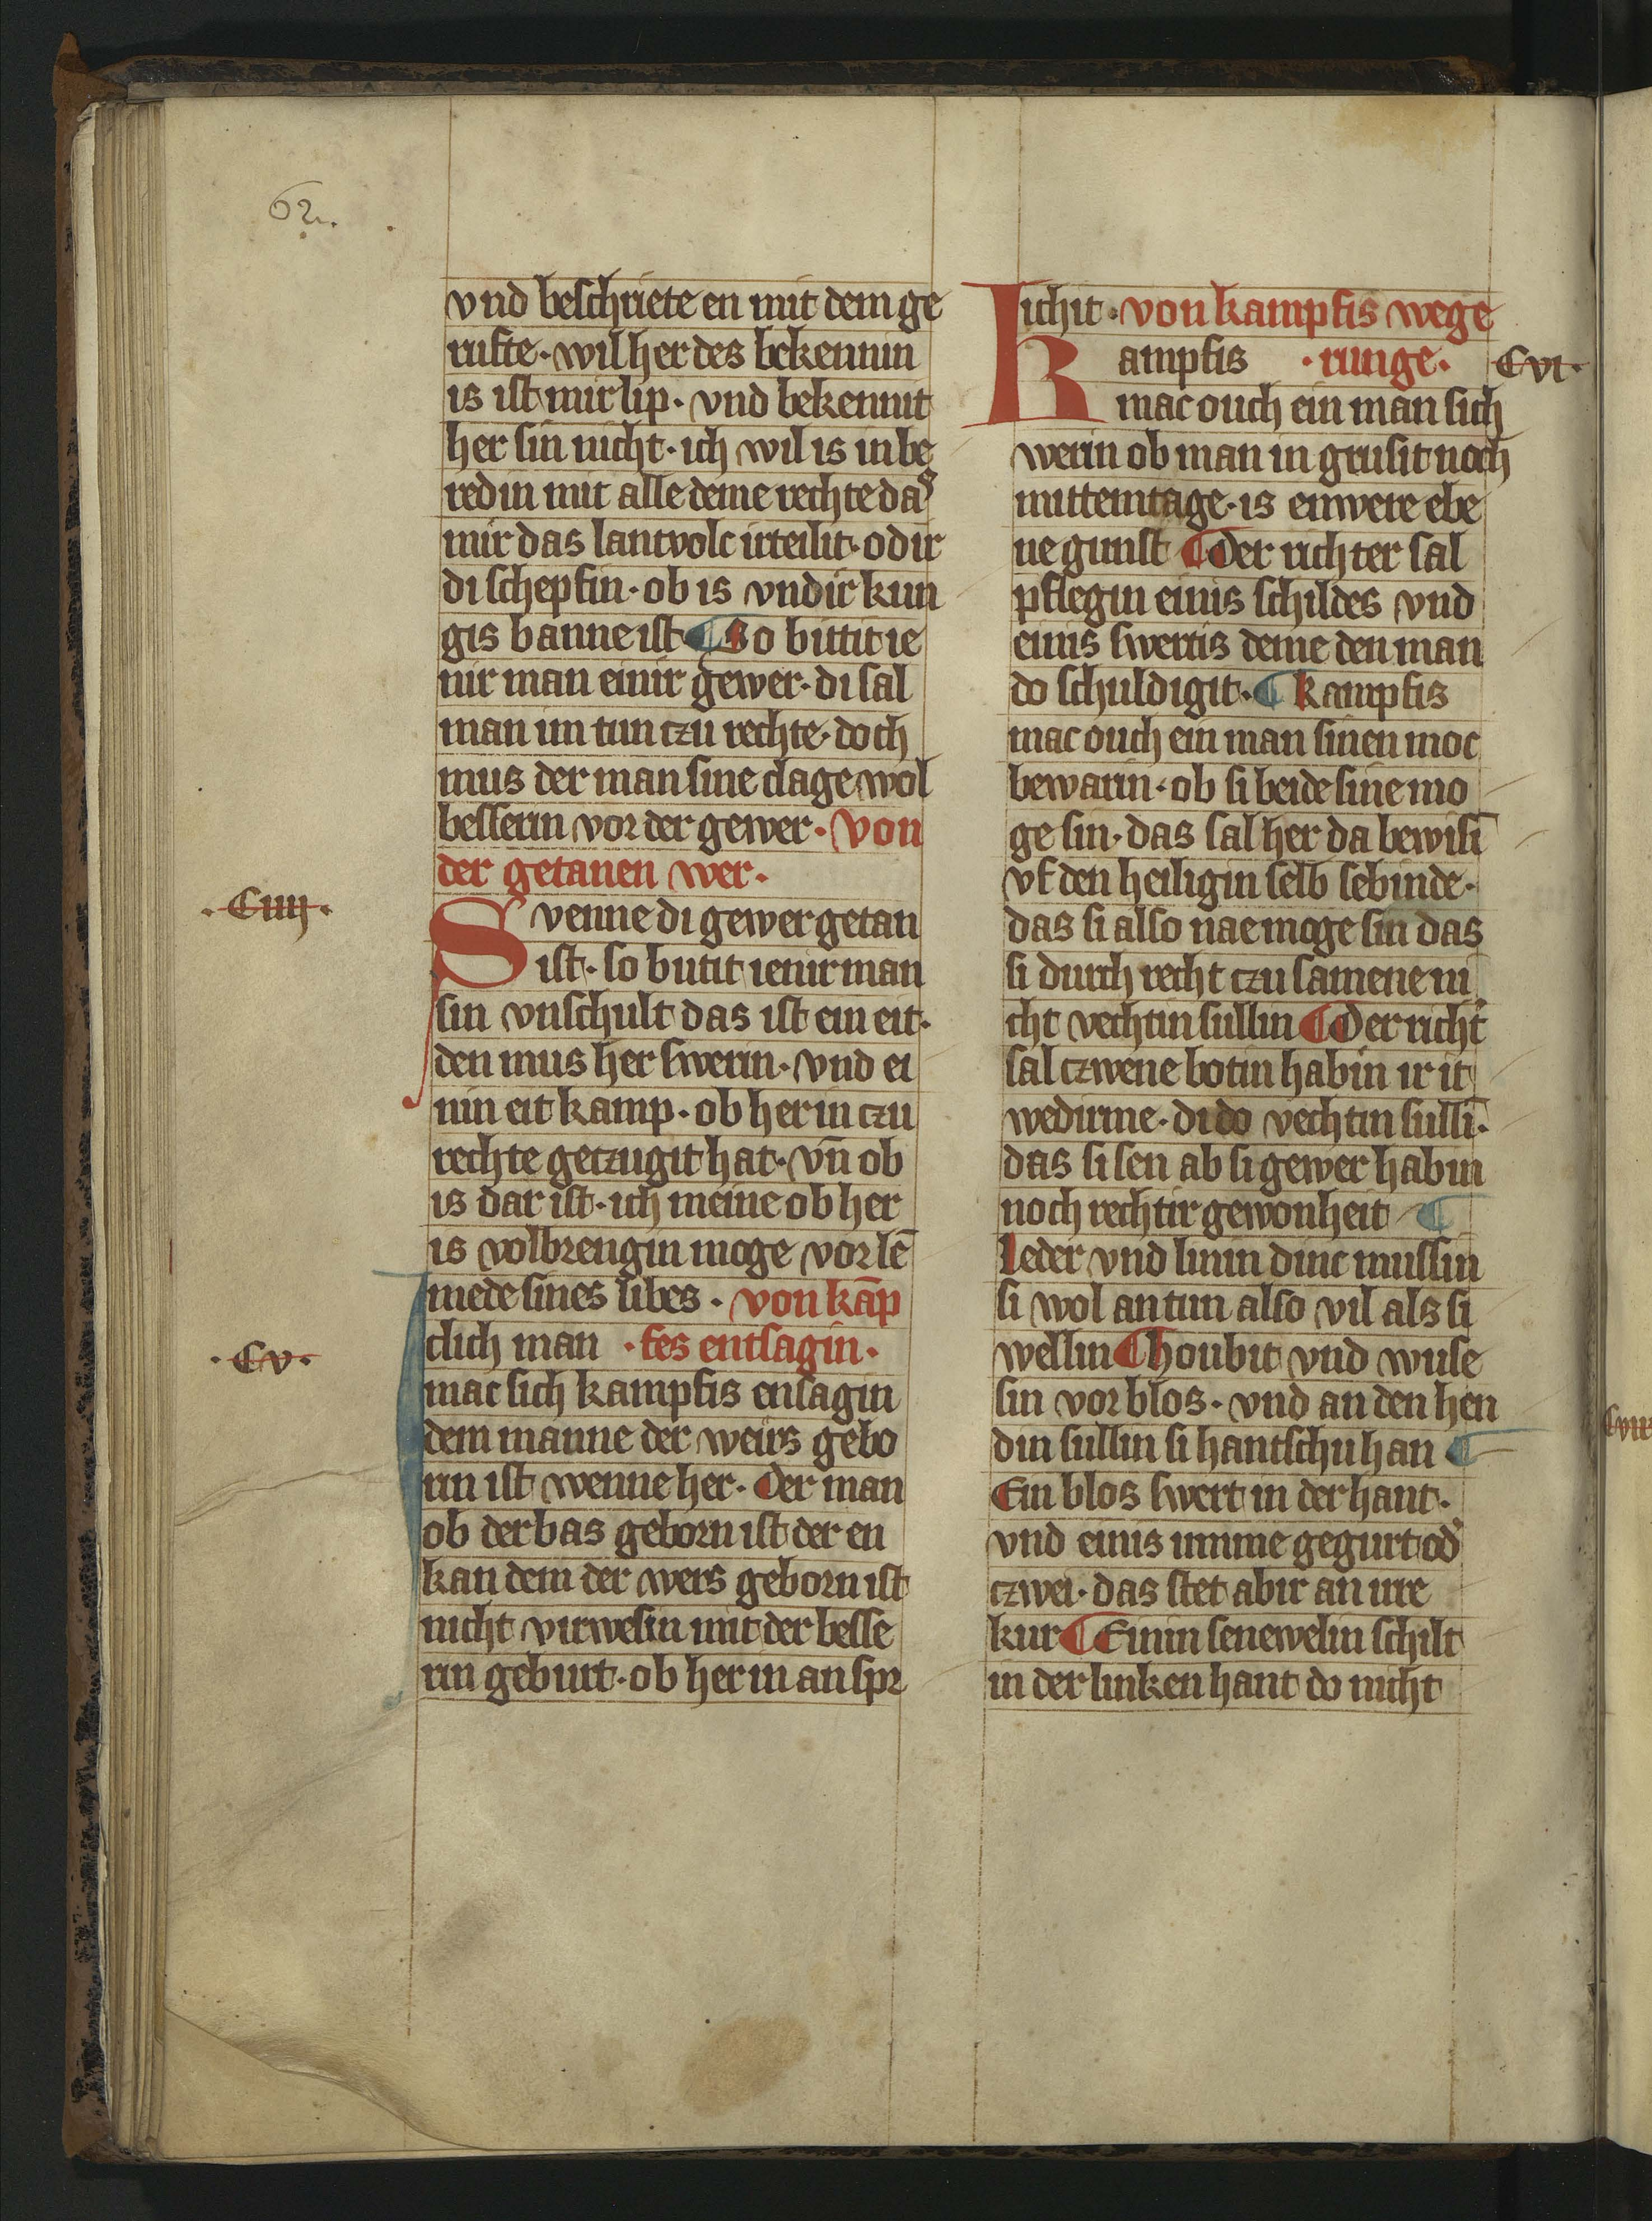 62.
vnd beschriete en mit dem ge
rufte · wil her des bekennin
is ist mir lip · vnd bekennit
her sin nicht · ich wil is in be
redin mit alle deme rechte das
mir das lantvolc irteilit · odir
di schepfin · ob is vndir kun
gis banne ist ¶ So buttit ie
nir man einir gewer · di sal
man im tun czu rechte · doch
mus der man sine clage wol
besserin vor der gewer · von
der getanen wer ·
· Ciiij ·
Svenne di gewer getan
ist · so butit ienir man
sin vnschult das ist ein eit ·
den mus her swerin · vnd ei
nin eit kamp · ob her in czu
rechte geczugit hat · vn̄ ob
is dar ist · ich meine ob her
is volbrengin moge vor lē
mede sines libes · von kāp
· Cv ·
Iclich man · fes entsagin ·
mac sich kampfis ensagin
dem manne der weirs gebo
rin ist wenne her · Der man
ob der bas geborn ist der en
kan dem der wers geborn ist
nicht virwesin mit der besse
rin geburt · ob her in an spr
ichit · von kampfis wege
Kampfis · runge · Cvi ·
mac ouch ein man sich
werin ob man in grusit noch
mittemtage · is enwere ebe
ne gunst ¶ Der richter sal
pflegin einis schildes vnd
einis swertis deme den man
do schuldigit · ¶ kampfis
mac ouch ein man sinen moc
bewarin · ob si beide sine mo
ge sin · das sal her da bewisī
vf den heiligin selb sebinde ·
das si also nae moge sin das
si durch recht czu samene ni
cht vechtin sullin ¶ Der richt᾽
sal czwene botin habin ir it
wedirme · di do vechtin sullī ·
das si sen ab si gewer habin
noch rechtir gewonheit ¶
leder vnd linin dinc mussin
si wol an tun also vil als si
wellin ¶ houbit vnd wuse
sin vor blos · vnd an den hen
din sullin si hantschu han ¶
Ein blos swert in der hant ·
vnd einis imme gegurt od᾽
czwei · das stet abir an ire
kur ¶ Einin senewelin schilt
in der linken hant do nicht